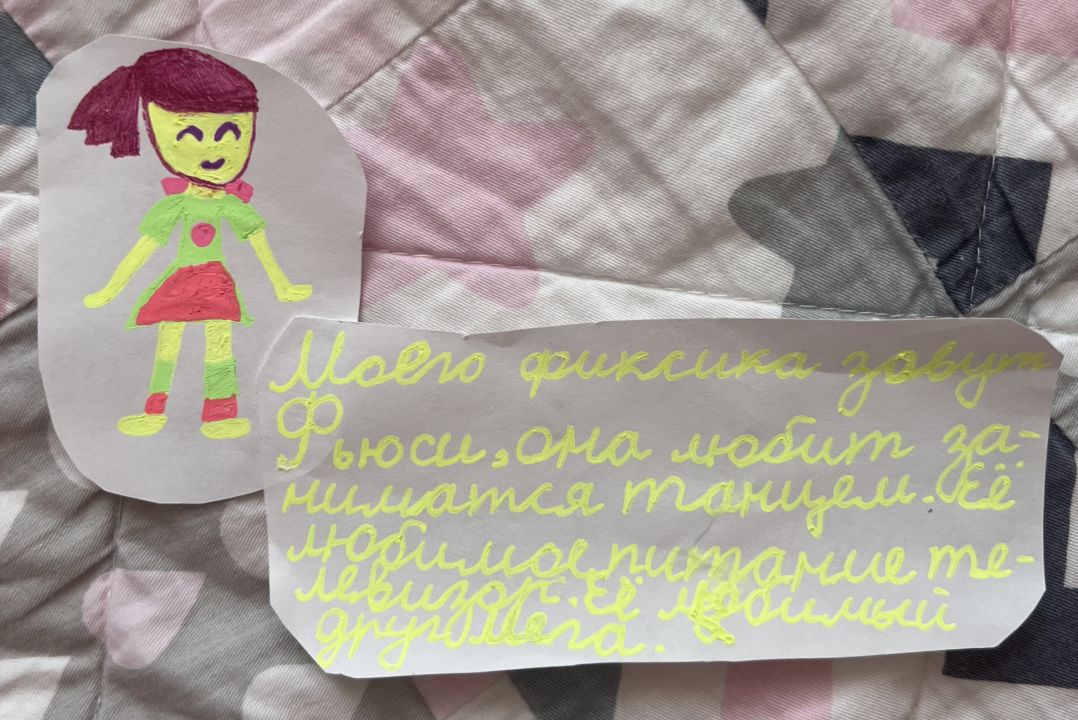 Моего фиксика зовут
Фьюси, она любит за-
ниматся танцем. Её
любимое питание те-
левизор. Её любимый
друг Мега.